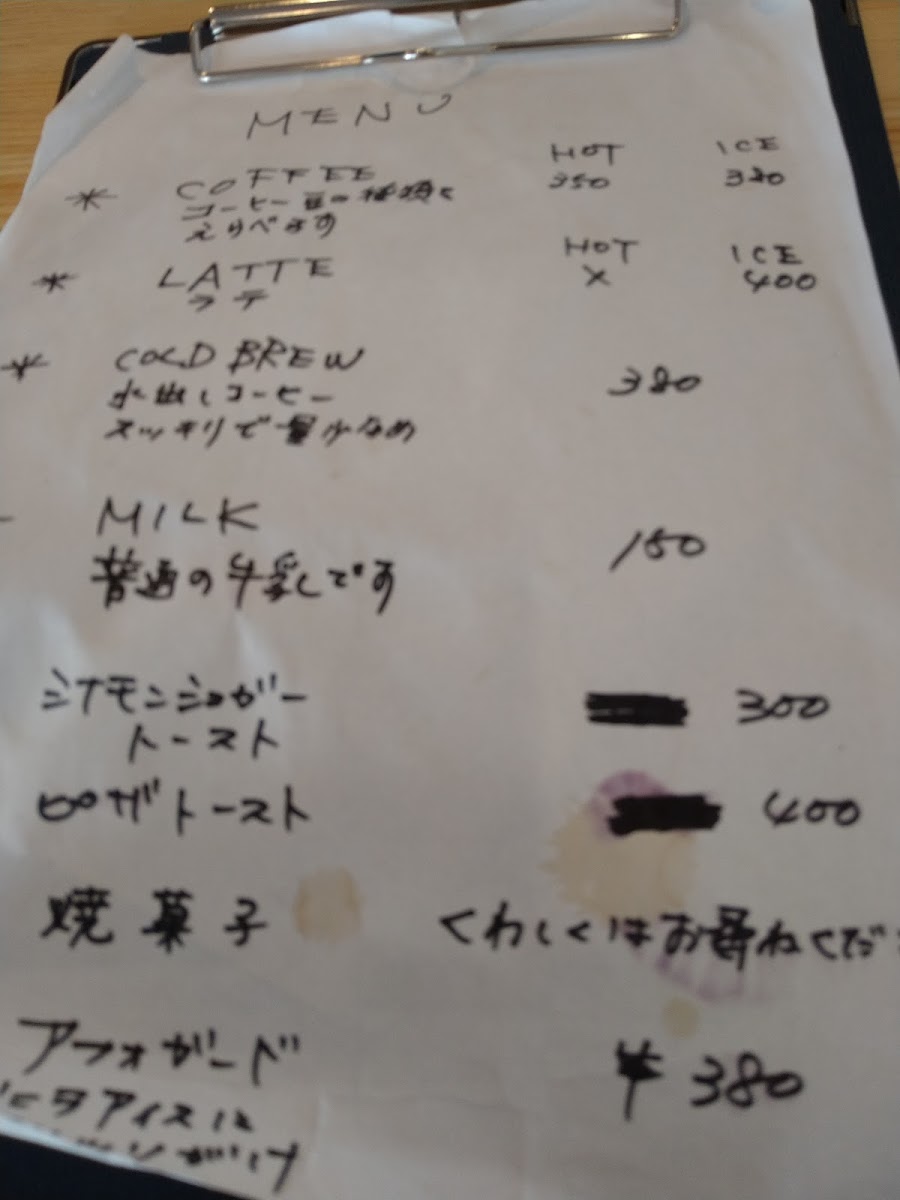 MENU
HOT ICE
* COFFEE 350
コーヒー豆の種類を
えらべます
HOT ICE
* LATTE X 400
ラテ
* COLD BREW
380
水出しコーヒー
スッキリで量少なめ
MILK
150
普通の牛乳です
シナモンシュガー 300
トースト
ピザトースト 400
焼菓子 くわしくはお尋ねくだ
アフォガード ¥380
アイスに